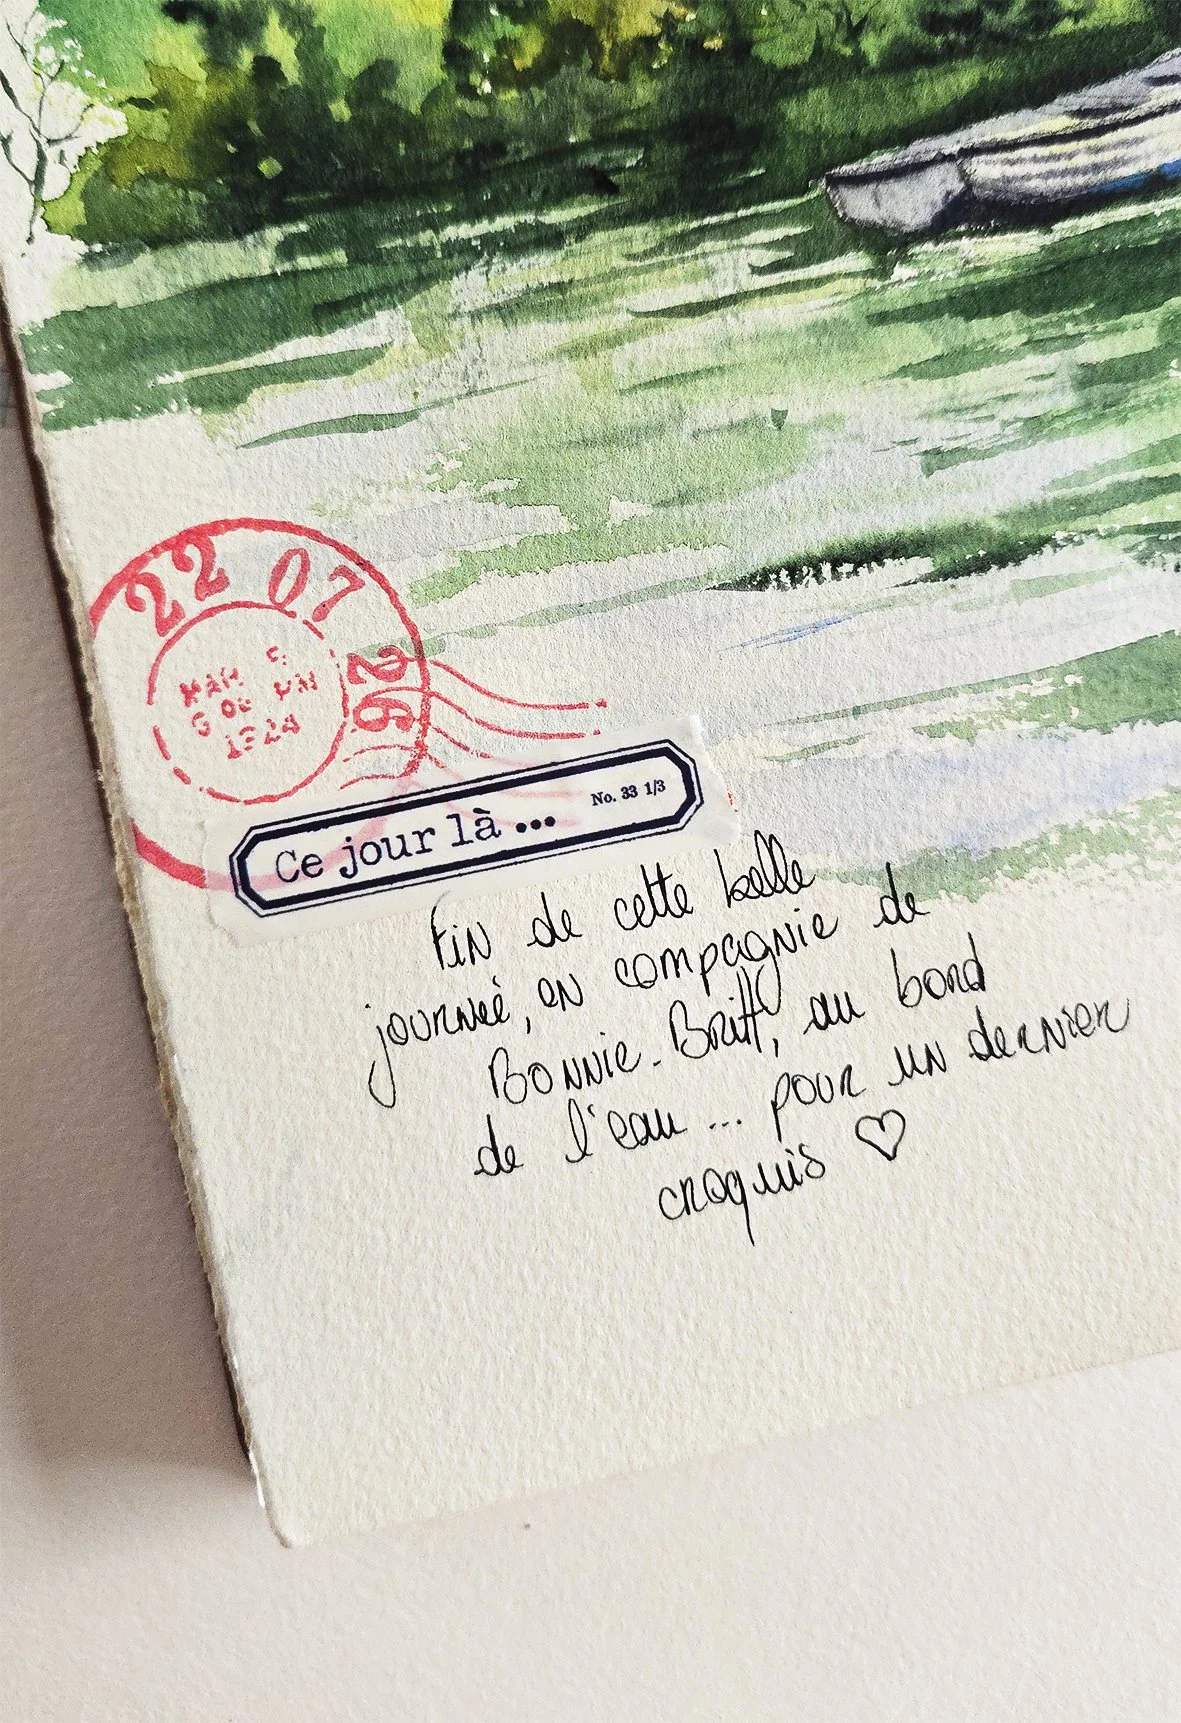 22 07
26
1924
Ce jour là ... No. 33 1/3
Fin de cette belle
journée, en compagnie de
Bonnie-Britt, au bord
de l'eau ... pour un dernier
croquis ♡